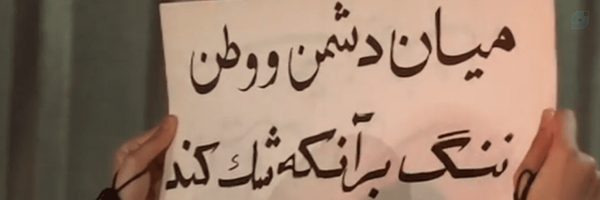 میان دشمن و وطن
ننگ بر آنکه شک کند